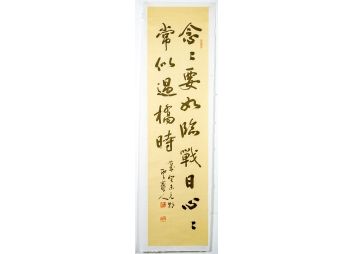 念〻要如臨戰日心〻
常似過橋時